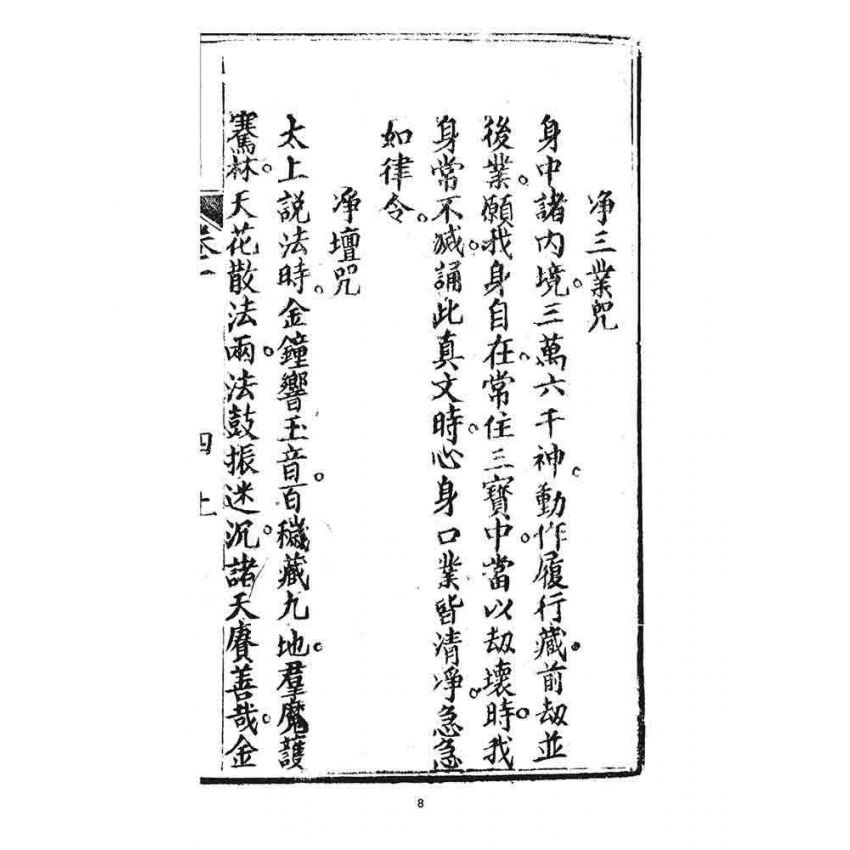 净三業咒
身中諸内境。三萬六千神。動作履行藏。前劫並
後業。願我身自在。常住三寶中。當以劫壞時。我
身常不滅。誦此真文時。心身口業皆清净。急急
如律令。
净壇咒
太上説法時。金鐘響玉音。百穢藏九地。羣魔護
騫林。天花散法雨。法鼓振迷沉。諸天賡善哉。金
卷一
四上
8